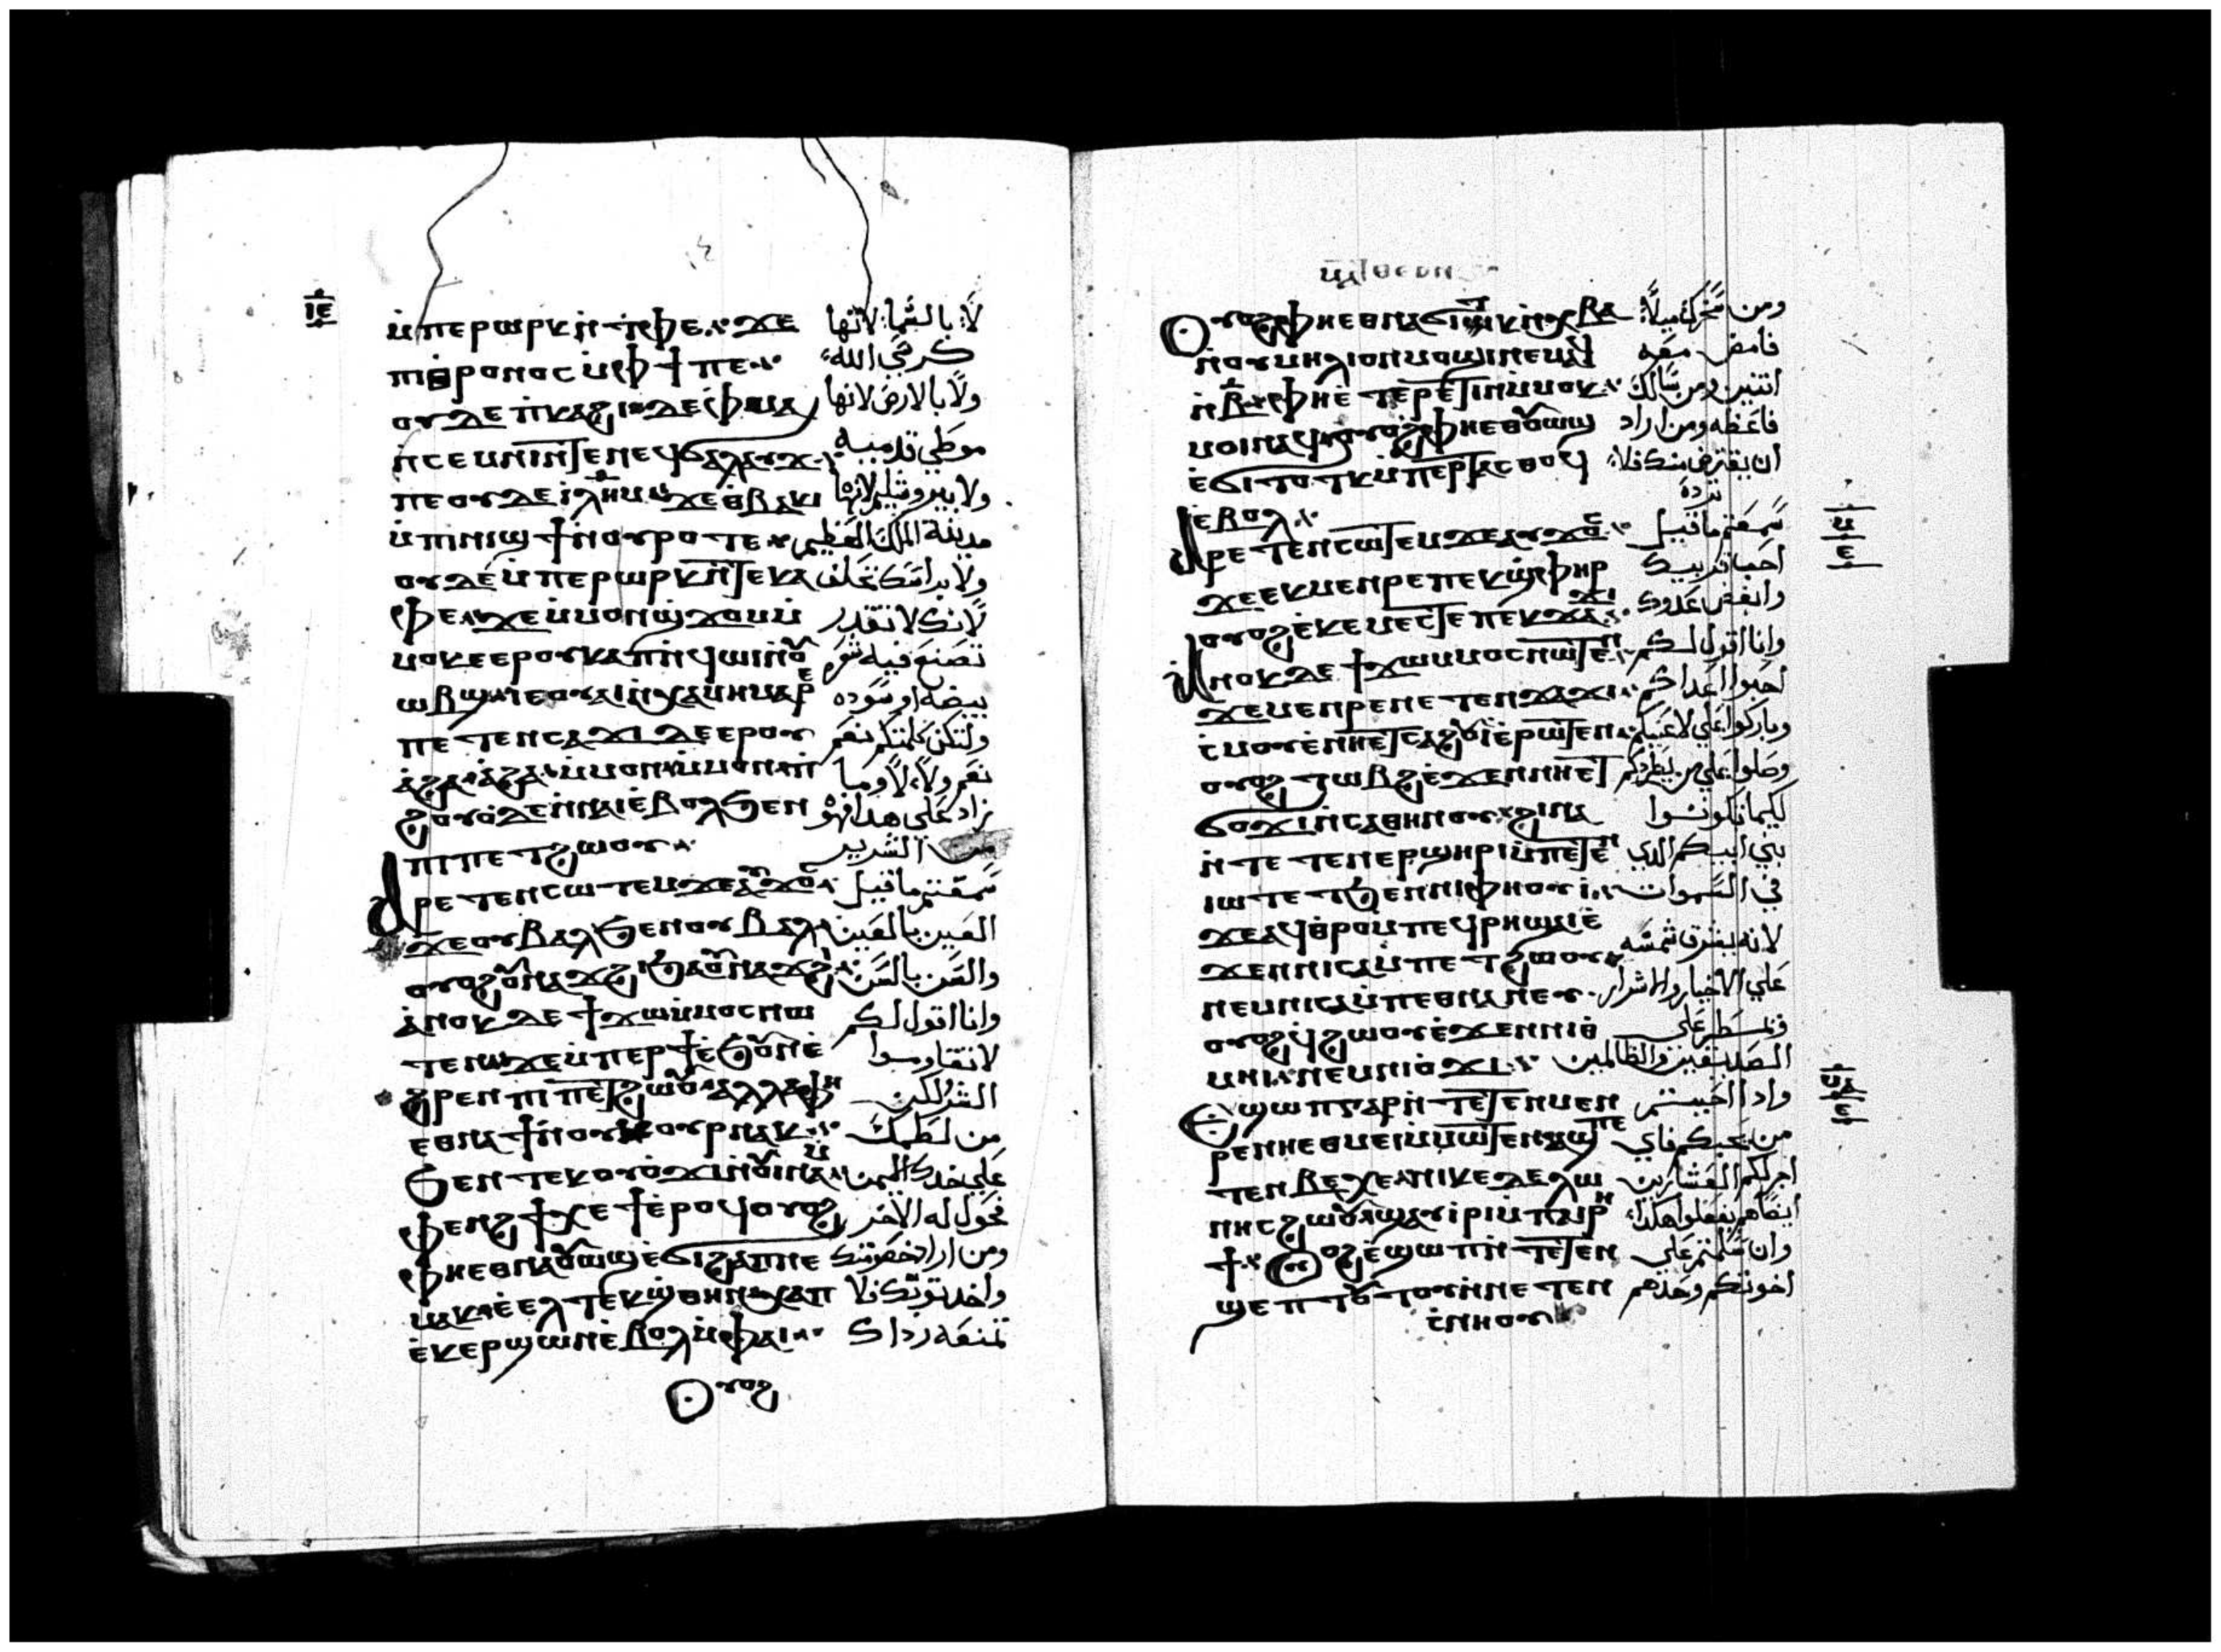 ⲓⲉ
ⲙ̇ⲡⲉⲣⲱⲣⲕ ⲛ̇ⲧⲫⲉ ϫⲉ لا بالسما لانها
ⲡⲓⲑⲣⲟⲛⲟⲥ ⲙ̇ⲫϯ ⲡⲉ كرسي الله
ⲟⲩⲇⲉ ⲡ̇ⲕⲁϩⲓ ϫⲉ ⲫⲙⲁ ولا بالارض لانها
ⲛ̇ⲥⲉⲙⲛⲓ ⲛ̇ⲧⲉ ⲛⲉϥϭⲁⲗⲁⲩϫ موطي قدميه
ⲡⲉ ⲟⲩⲇⲉ ⲓⲗⲏⲙ ϫⲉ ⲑⲃⲁⲕⲓ ولا بيروشليم لانها
ⲙ̇ⲡⲓⲛⲓϣϯ ⲛ̇ⲟⲩⲣⲟ ⲧⲉ مدينة الملك العظيم
ⲟⲩⲇⲉ ⲙ̇ⲡⲉⲣⲱⲣⲕ ⲛ̇ⲧⲉⲕⲁ ولا براسك تحلف
ⲫⲉ ϫⲉ ⲙ̇ⲙⲟⲛ ϣϫⲟⲙ ⲙ̇ لانك لا تقدر
ⲙⲟⲕ ⲉⲉⲣ ⲟⲩⲕⲁⲡ ⲛ̇ϥⲱⲓ ⲛ̇ⲟⲩ تصنع فيه شعره
ⲱⲃϣ ⲓⲉ ⲟⲩⲁⲓ ⲛ̇ⲭⲁⲙⲏ ⲙⲁⲣⲉ بيضه او سوده
ⲡⲉⲧⲉⲛⲥⲁϫⲓ ⲇⲉ ⲉⲣ ⲟⲩ ولتكن كلمتكم نعم
ⲁ̇ϩⲁ ⲁ̇ϩⲁ ⲙ̇ⲙⲟⲛ ⲙ̇ⲙⲟⲛ ⲡ̇ نعم ولا لا وما
ϩⲟⲩⲟ ⲇⲉ ⲛ̇ⲛⲁⲓ ⲉ̇ⲃⲟⲗ ϧⲉⲛ زاد علي هدا فهو
ⲡⲓⲡⲉⲧϩⲱⲟⲩ من الشرير
ⲁⲣⲉⲧⲉⲛⲥⲱⲧⲉⲙ ϫⲉ ⲁⲩϫⲟⲥ سمعتم ما قيل
ϫⲉ ⲟⲩⲃⲁⲗ ϧⲉⲛ ⲟⲩⲃⲁⲗ العين بالعين
ⲟⲩⲟϩ ⲟⲩⲛⲁϫϩⲓ ϧⲁ ⲟⲩⲛⲁϫϩⲓ والسن بالسن
ⲁ̇ⲛⲟⲕ ⲇⲉ ϯϫⲱ ⲙ̇ⲙⲟⲥ ⲛⲱ وانا اقول لكم
ⲧⲉⲛ ϫⲉ ⲙ̇ⲡⲉⲣϯ ⲉ̇ϧⲟⲩⲛ ⲉ̇ لا تقاوموا
ϩⲣⲉⲛ ⲡⲓⲡⲉⲧϩⲱⲟⲩ ⲁⲗⲗⲁ ⲫⲏ الشر لكن
ⲉⲑⲛⲁϯ ⲛ̇ⲟⲩⲕⲟⲩⲣ ⲛⲁⲕ من لطمك
ϧⲉⲛ ⲧⲉⲕⲟⲩⲟϫⲓ ⲛ̇ⲟⲩⲓⲛⲁⲙ علي خدك اليمن
ⲫⲉⲛϩ ϯⲭⲉϯ ⲉ̇ⲣⲟϥ ⲟⲩⲟϩ فحول له الاخر
ⲫⲏⲉⲑⲛⲁⲟⲩⲱϣ ⲉ̇ϭⲓϩⲁⲡ ⲛⲉ ومن اراد خصومتك
ⲙⲁⲕ ⲉ̇ⲉⲗ ⲧⲉⲕϣⲑⲏⲛ ⲭⲁ ⲡ واخد توبك فلا
ⲉ̇ⲕⲉⲣϣⲱⲛ ⲉ̇ⲃⲟⲗ ⲙ̇ⲫⲁⲓ تمنعه رداك
ⲟⲩⲟϩ
ⲟⲩⲟϩ ⲫⲏⲉⲑⲛⲁϭⲓⲧⲕ ⲛ̇ⲭⲃⲁ ومن سخرك ميلا
ⲛ̇ⲟⲩⲙⲏⲗⲓⲟⲛ ⲙⲟϣⲓ ⲛⲉⲙⲁϥ فامض معه
ⲛ̇ⲃ ⲫⲏⲉⲧⲉⲣⲉⲧⲓⲛ ⲙ̇ⲙⲟⲕ اتنين ومن سالك
ⲙⲟⲓ ⲛⲁϥ ⲟⲩⲟϩ ⲫⲏⲉⲑⲟⲩⲱϣ فاعطه ومن اراد
ⲉ̇ϭⲓ ⲧⲟⲧⲕ ⲙ̇ⲡⲉⲣⲧⲁⲥⲑⲟϥ ان يقترض منك فلا
ⲉⲃⲟⲗ ترده
ⲁⲣⲉⲧⲉⲛⲥⲱⲧⲉⲙ ϫⲉ ⲁⲩϫⲟⲥ سمعتم ما قيل
ϫⲉ ⲉⲕⲙⲉⲛⲣⲉ ⲡⲉⲕϣⲫⲏⲣ احب قريبك
ⲟⲩⲟϩ ⲉ̇ⲕⲉⲙⲉⲥⲧⲉ ⲡⲉⲕϫⲁϫⲓ وابغض عدوك
ⲁⲛⲟⲕ ⲇⲉ ϯϫⲱ ⲙⲙⲟⲥ ⲛⲱⲧⲉⲛ وانا اقول لكم
ϫⲉ ⲙⲉⲛⲣⲉ ⲛⲉⲧⲉⲛϫⲁϫⲓ احبوا اعداكم
ⲥ̇ⲙⲟⲩ ⲉ̇ⲛⲏⲉⲧⲥⲁϩⲟⲩⲓ ⲉ̇ⲣⲱⲧⲉⲛ وباركوا علي لاعنيكم
ⲟⲩⲟϩ ⲧⲱⲃϩ ⲉ̇ϫⲉⲛ ⲛⲏⲉⲧ وصلوا علي من يطردكم
ϭⲟϫⲓ ⲛ̇ⲥⲁ ⲑⲏⲛⲟⲩ ϩⲓⲛⲁ لكيما تكونوا
ⲛ̇ⲧⲉⲧⲉⲛⲉⲣϣⲏⲣⲓ ⲙ̇ⲡⲉⲧⲉⲛ بني ابيكم الدي
ⲓⲱⲧ ⲉⲧϧⲉⲛ ⲛⲓⲫⲏⲟⲩⲓ̇ في السموات
ϫⲉ ⲁϥⲑⲣⲟ ⲙ̇ⲡⲉϥⲣⲏ ϣⲁⲓ ⲉ̇ لانه يشرق شمسه
ϫⲉⲛ ⲛⲓⲥⲁⲙⲡⲉⲧϩⲱⲟⲩ علي الاخيار والاشرار
ⲛⲉⲙ ⲛⲓⲥⲁⲙⲡⲉⲑⲛⲁⲛⲉⲩ
ⲟⲩⲟϩ ϥϩⲱⲟⲩ ⲉ̇ϫⲉⲛ ⲛⲓⲑ ويمطر علي
ⲙⲏⲓ ⲛⲉⲙ ⲛⲓⲟ̇ϫⲓ الصديقين والظالمين
ⲉϣⲱⲡ ⲅⲁⲣ ⲛ̇ⲧⲉⲧⲉⲛⲙⲉⲛ وادا احببتم
ⲣⲉ ⲛⲏⲉⲑⲙⲉⲓ ⲙ̇ⲙⲱⲧⲉⲛ ⲁϣ ⲡⲉ من يحبكم فاي
ⲧⲉⲛⲃⲉⲭⲉ ⲛⲓⲕⲉⲧⲉⲗⲱ اجر لكم العشارين
ⲛⲏⲥ ϩⲱⲟⲩ ϣⲁⲩⲓ̇ⲣⲓ ⲙ̇ⲡⲁⲓⲣⲏ ايضا هم يفعلوا هكدا
ϯ ⲟⲩⲟϩ ⲉ̇ϣⲱⲡ ⲛ̇ⲧⲉⲧⲉⲛ وان سلمتم علي
ϣⲉⲡ ⲧⲟⲧⲟⲩ ⲛ̇ⲛⲉⲧⲉⲛ اخوتكم وحدهم
ⲥ̇ⲛⲏⲟⲩ